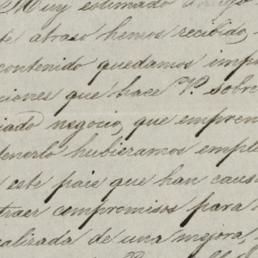 Muy estimado amigo
te atraso hemos recibido,
contenido quedamos imp
ciones que hace V. sobre
iado negocio, que empren
tenerlo hubieramos emple
este pais que han caus
traer compromisos para
alizada de una mejora,